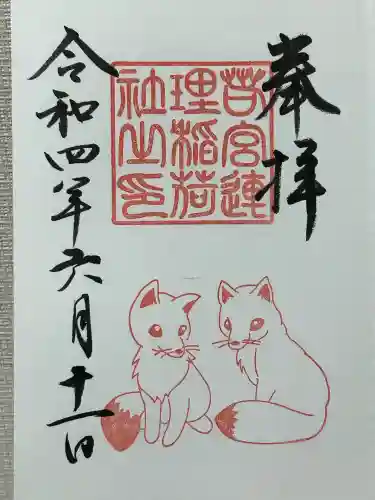 奉拝
苔宮連
理稲荷
社之印
令和四年六月十一日